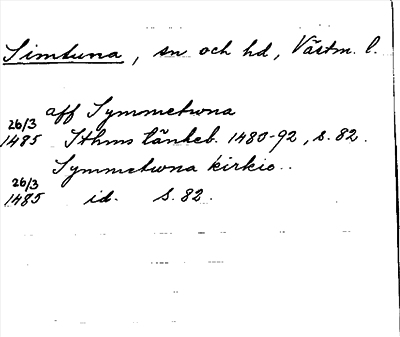 Simtuna, sn och hd, Västm. l.
aff Symmetwna
26/3 1485 Sthms tänkeb. 1480-92, s. 82.
Symmetwna kirkio..
26/3 1485 id. s. 82.